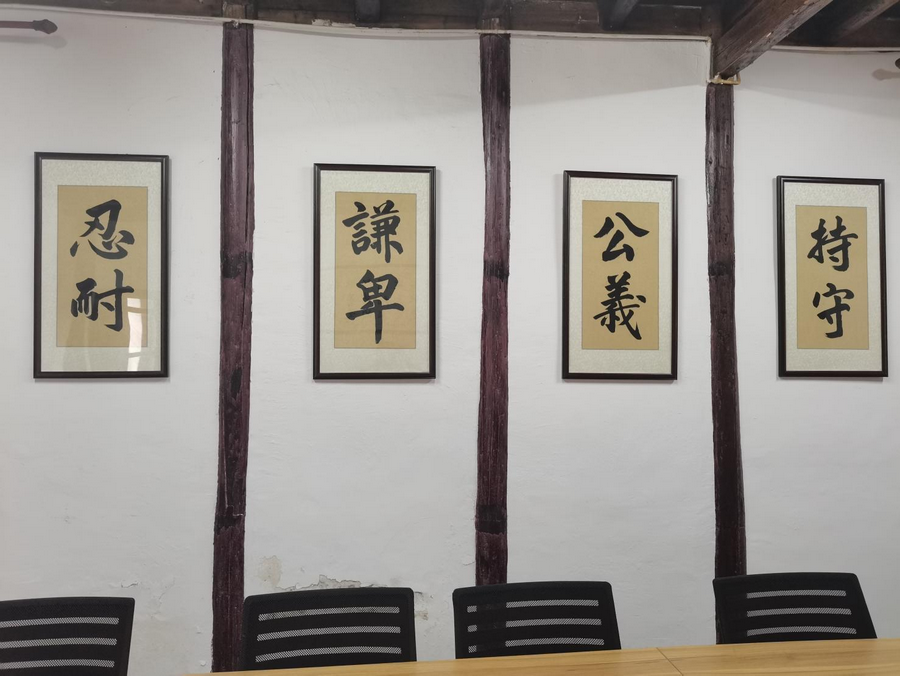 忍耐
謙卑
公義
持守